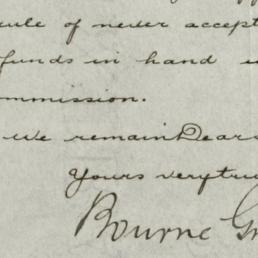 rule of never accept
funds in hand
ommission.
We remain Dears
Yours very tru
Bourne Gr